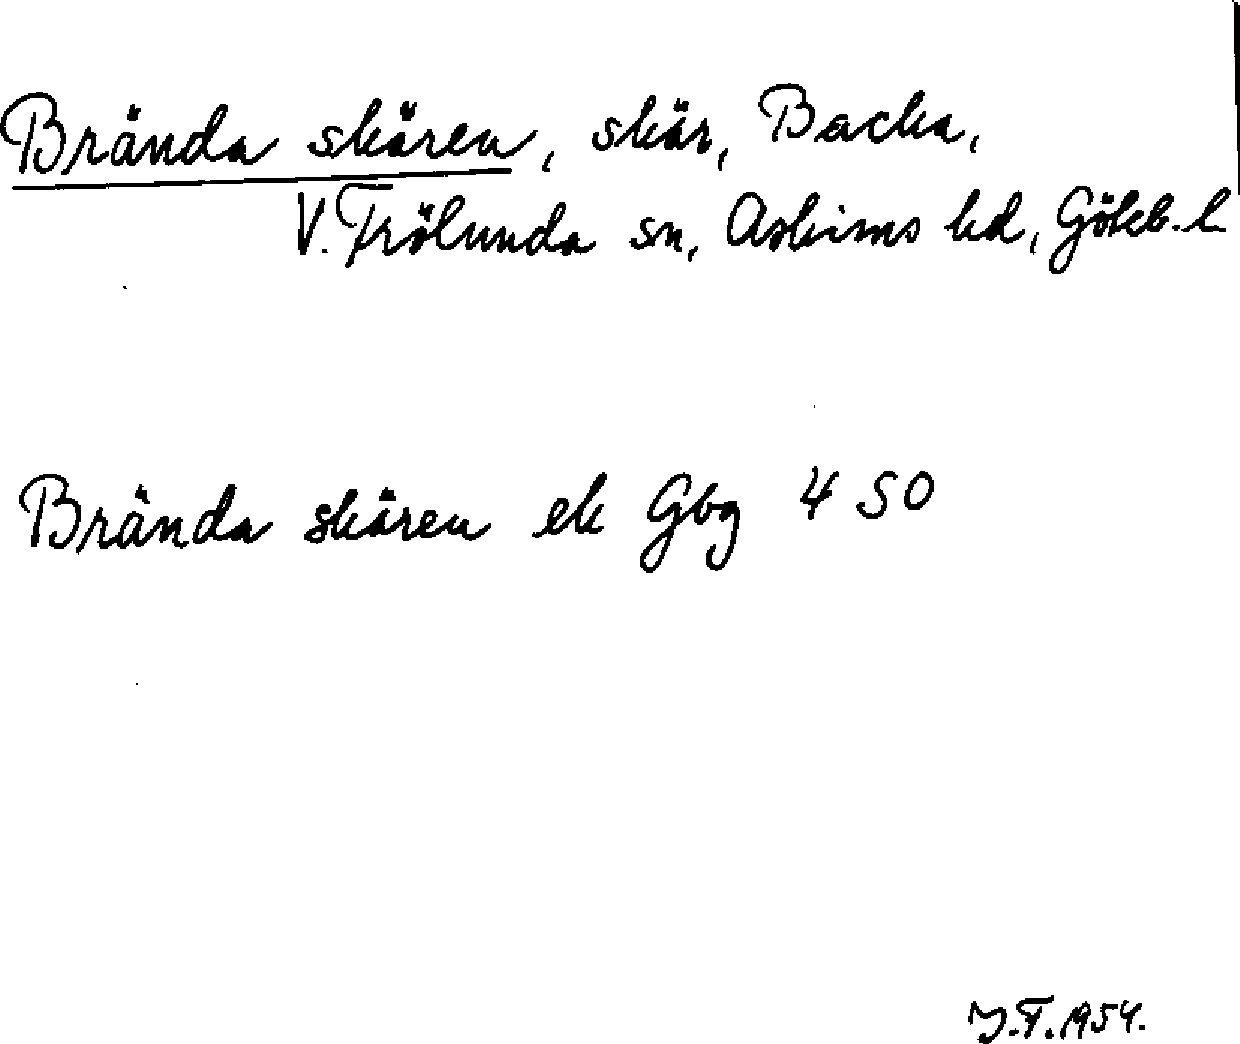 Brända skären, skär, Backa,
V. Frölunda sn, Askims hd, Göteb. l.
Brända skären ek Gbg 4 SO
J.F. 1954.